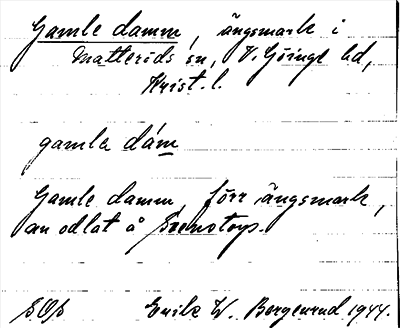 Gamle damm, ängsmark i
Matteröds sn, V. Göinge hd,
Krist. l.
gamla dám
Gamle damm, förr ängsmark,
nu odlat å
Erik W. Bergenrud 1944.